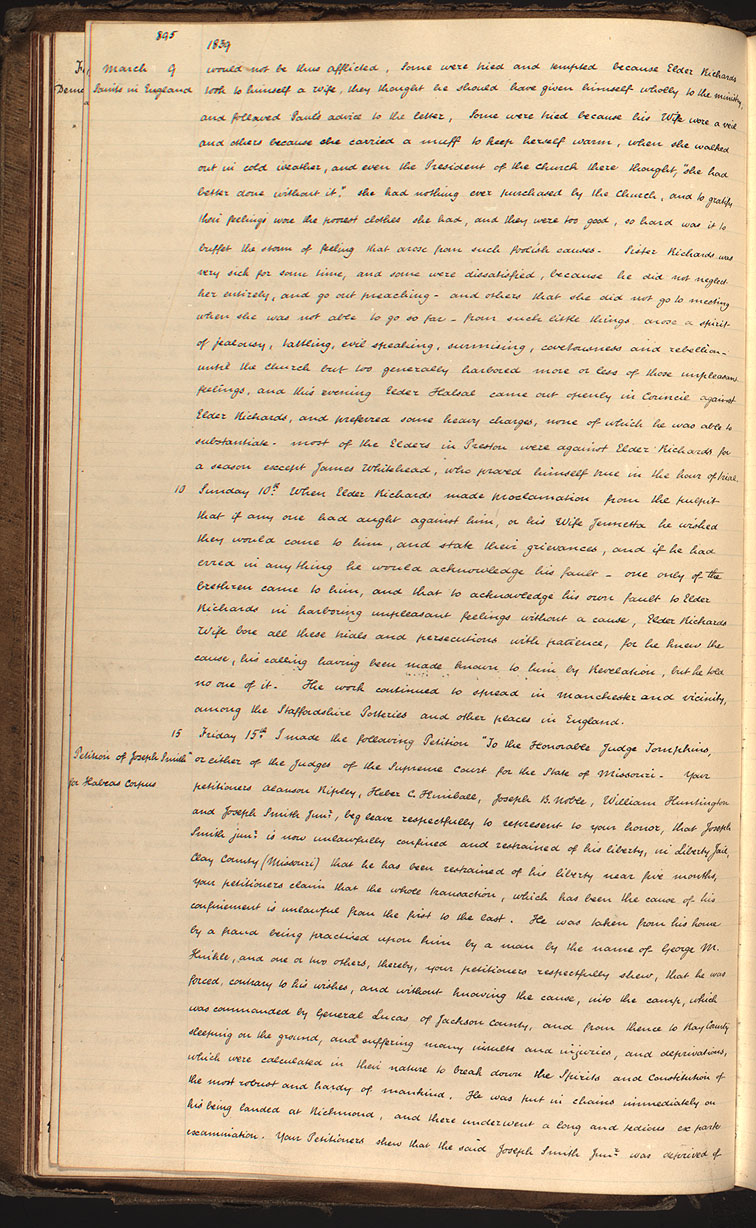 895
1839
March 9 would not be thus afflicted, Some were tried and tempted because Elder Richards
Saints in England took to himself a Wife, they thought he should have given himself wholly to the ministry,
and followed Paul's advice to the letter, Some were tried because his Wife wore a veil
and others because she carried a muff to keep herself warm, when she walked
out in cold weather, and even the President of the Church there thought, "she had
better done without it", she had nothing ever purchased by the Church, and to gratify
their feelings wore the poorest clothes she had, and they were too good, so hard was it to
buffet the storm of feeling that arose from such foolish causes - Sister Richards was
very sick for some time, and some were dissatisfied, because he did not neglect
her entirely, and go out preaching - and others that she did not go to meeting
when she was not able to go so far - from such little things arose a spirit
of jealousy, tattling, evil speaking, surmising, covetousness and rebellion -
until the Church but too generally harbored more or less of those unpleasant
feelings, and this evening Elder Halsal came out openly in Council against
Elder Richards, and preferred some heavy charges, none of which he was able to
substantiate - most of the Elders in Preston were against Elder Richards for
a season except James Whitehead, who proved himself true in the hour of trial.
10 Sunday 10th. When Elder Richards made proclamation from the pulpit
that if any one had aught against him, or his Wife Jennetta he wished
they would come to him, and state their grievances, and if he had
erred in any thing he would acknowledge his fault - one only of the
brethren came to him, and that to acknowledge his own fault to Elder
Richards in harboring unpleasant feelings without a cause, Elder Richards
Wife bore all these trials and persecutions with patience, for he knew the
cause, his calling having been made known to him by Revelation, but he told
no one of it - The work continued to spread in Manchester and vicinity,
among the Staffordshire Potteries and other places in England.
15 Friday 15th. I made the following Petition "To the Honorable Judge Tompkins,
Petition of Joseph Smith " or either of the Judges of the Supreme Court for the State of Missouri - Your
for Habeas Corpus petitioners Alanson Ripley, Heber C. Kimball, Joseph B. Noble, William Huntington
and Joseph Smith Junr., beg leave respectfully to represent to your honor, that Joseph
Smith junr. is now unlawfully confined and restrained of his liberty, in Liberty Jail,
Clay County (Missouri) that he has been restrained of his liberty near five months,
your petitioners claim that the whole transaction, which has been the cause of his
confinement is unlawful from the first to the last. He was taken from his home
by a fraud being practised upon him by a man by the name of George M.
Hinkle, and one or two others, thereby, your petitioners respectfully shew, that he was
forced, contrary to his wishes, and without knowing the cause, into the camp, which
was commanded by General Lucas of Jackson County, and from thence to Ray County
sleeping on the ground, and suffering many insults and injuries, and deprivations,
which were calculated in their nature to break down the Spirits and Constitution of
the most robust and hardy of mankind. He was put in chains immediately on
his being landed at Richmond, and there underwent a long and tedious ex parte
examination. Your Petitioners shew that the said Joseph Smith Junr. was deprived of